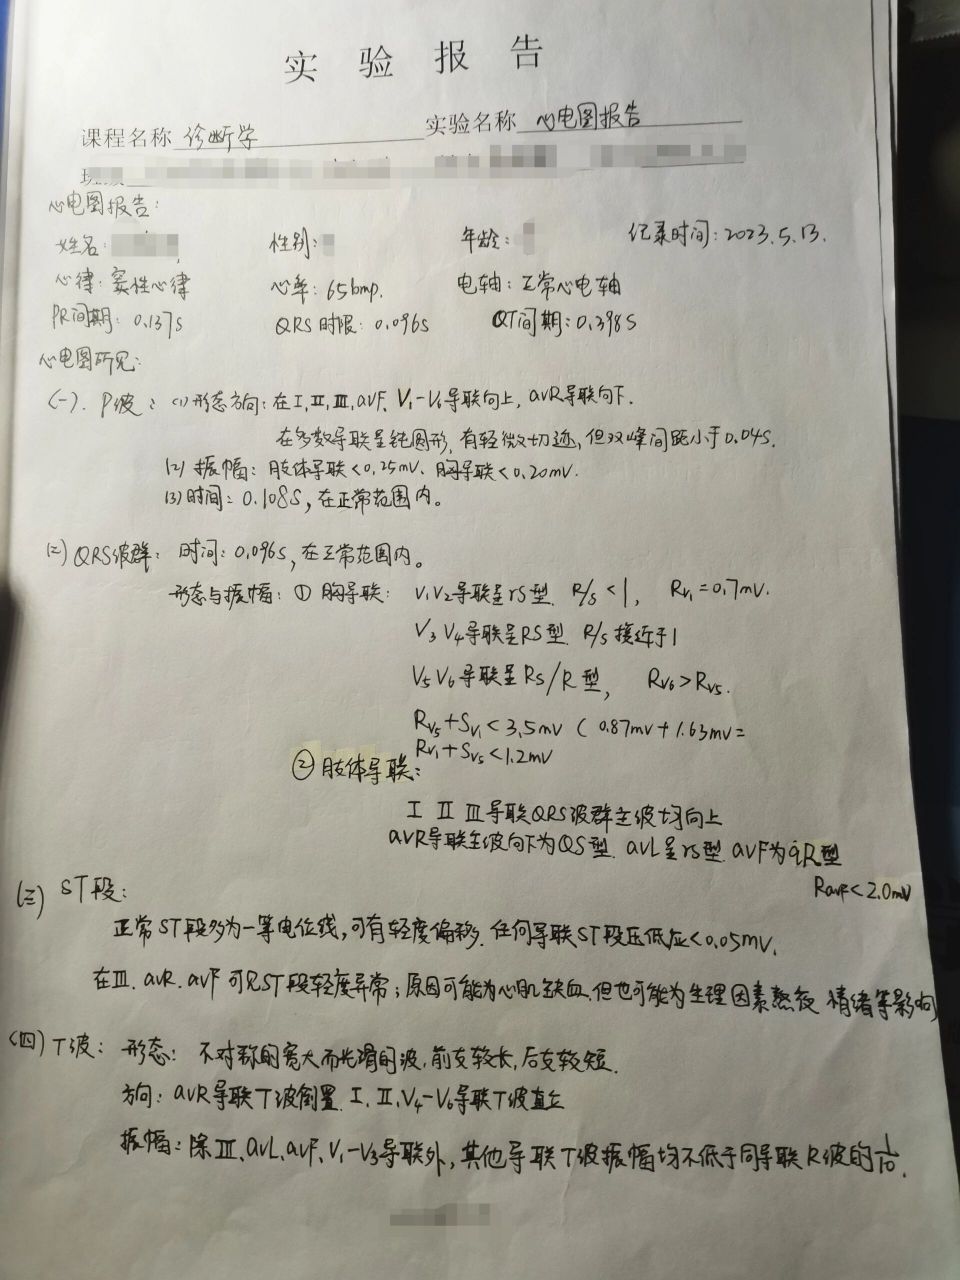 实验报告
课程名称 诊断学 实验名称 心电图报告
心电图报告:
姓名: 性别: 年龄: 纪录时间: 2023.5.13.
心律: 窦性心律 心率: 65bmp. 电轴: 正常心电轴
PR间期: 0.137s QRS时限: 0.096s QT间期: 0.398s
心电图所见:
(一). P波: (1)形态方向: 在I、II、III、aVF、V₁-V₆导联向上, aVR导联向下.
在多数导联呈钝圆形, 有轻微切迹, 但双峰间距小于0.04s.
(2) 振幅: 肢体导联<0.25mV、胸导联<0.20mV.
(3)时间: 0.108s, 在正常范围内。
(二) QRS波群: 时间: 0.096s, 在正常范围内。
形态与振幅: ① 胸导联: V₁V₂导联呈rS型. R/S<1, Rv₁=0.7mV.
V₃V₄导联呈RS型. R/S接近于1
V₅V₆导联呈Rs/R型, Rv₆>Rv₅.
Rv₅+Sv₁<3.5mV ( 0.87mV+1.63mV=
Rv₁+Sv₅<1.2mV
② 肢体导联:
I II III导联QRS波群主波均向上
aVR导联主波向下为QS型. aVL呈rS型. aVF为qR型
RaVF<2.0mV
(三) ST段:
正常ST段多为一等电位线, 可有轻度偏移. 任何导联ST段压低应<0.05mV.
在III、aVR、aVF可见ST段轻度异常; 原因可能为心肌缺血. 但也可能为生理因素熬夜 情绪等影响
(四) T波: 形态: 不对称的宽大而光滑的波, 前支较长, 后支较短.
方向: aVR导联T波倒置. I、II、V₄-V₆导联T波直立
振幅: 除III、aVL、aVF、V₁-V₃导联外, 其他导联T波振幅均不低于同导联R波的1/10.